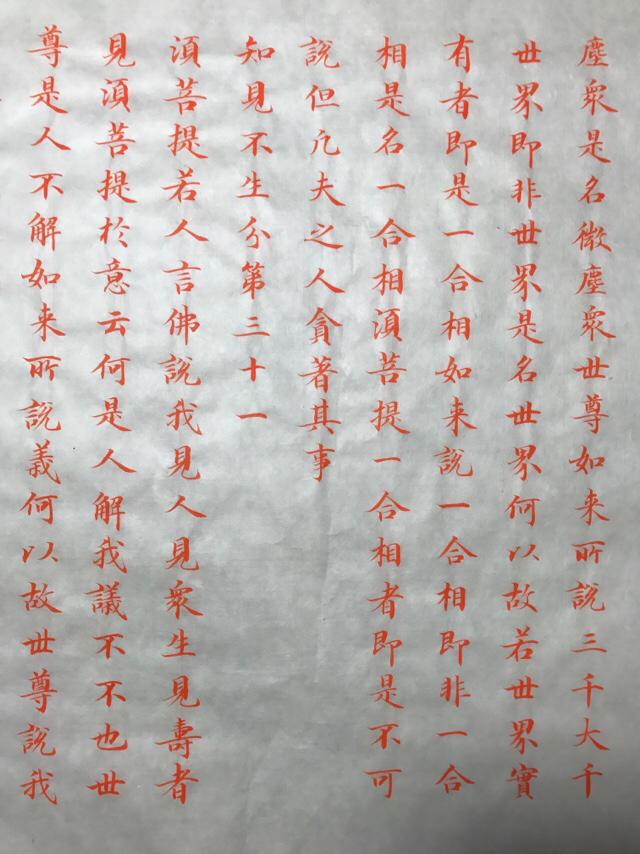 塵眾是名微塵眾世尊如来所說三千大千
世界即非世界是名世界何以故若世界實
有者即是一合相如来說一合相即非一合
相是名一合相須菩提一合相者即是不可
說但凡夫之人貪著其事
知見不生分第三十一
須菩提若人言佛說我見人見眾生見壽者
見須菩提於意云何是人解我議不不也世
尊是人不解如来所說義何以故世尊說我